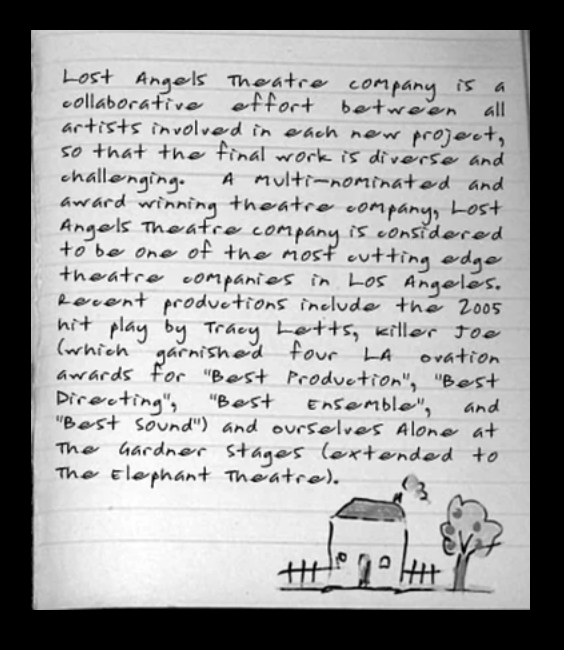 Lost Angels Theatre company is a
collaborative effort between all
artists involved in each new project,
so that the final work is diverse and
challenging. A multi-nominated and
award winning theatre company, Lost
Angels Theatre company is considered
to be one of the most cutting edge
theatre companies in Los Angeles.
Recent productions include the 2005
hit play by Tracy Letts, Killer Joe
(which garnished four LA ovation
awards for "Best Production", "Best
Directing", "Best Ensemble", and
"Best Sound") and ourselves Alone at
The Gardner Stages (extended to
The Elephant Theatre).